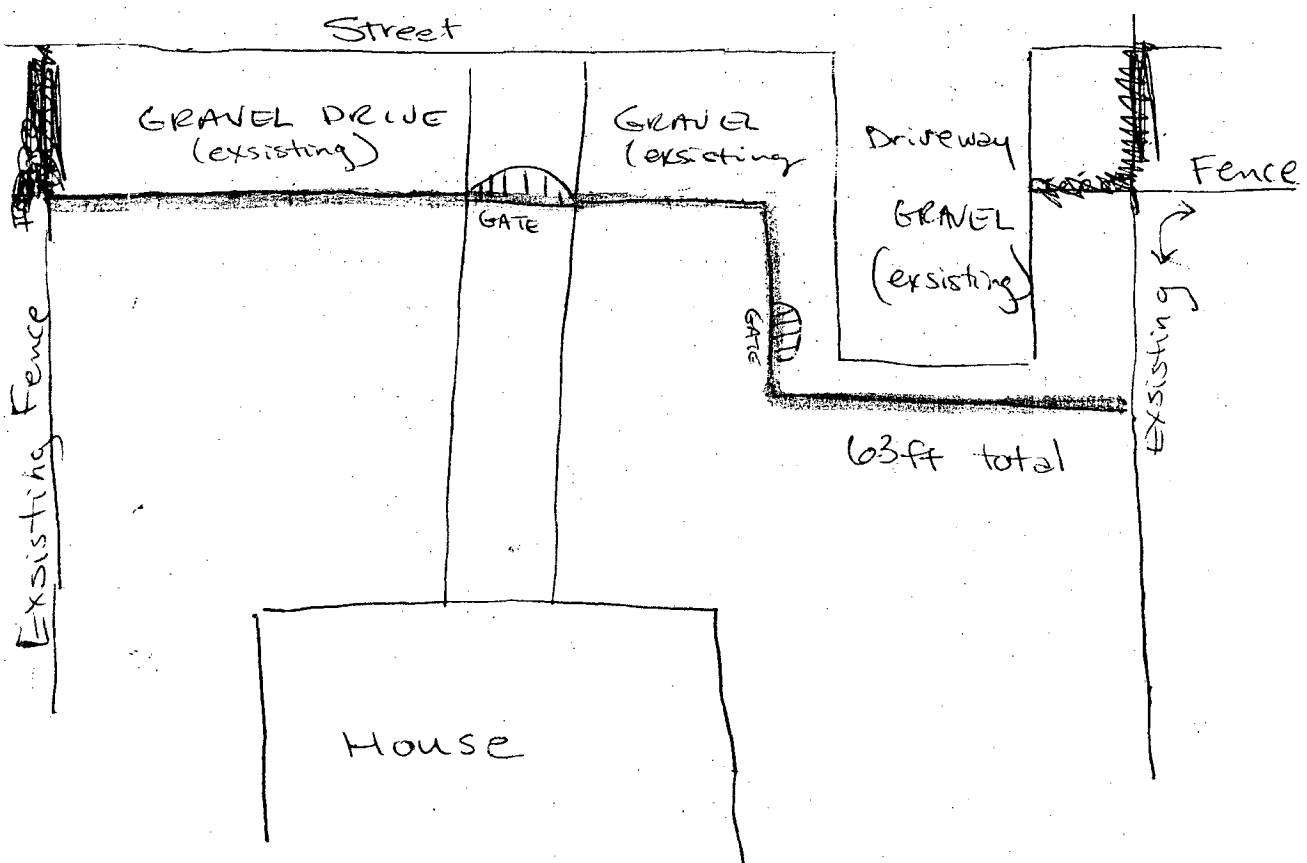 Street
GRAVEL DRIVE
(exsisting)
GRAVEL
(exsisting
Driveway
GRAVEL
(exsisting)
Fence
GATE
GATE
Exsisting
Exsisting Fence
63ft total
House